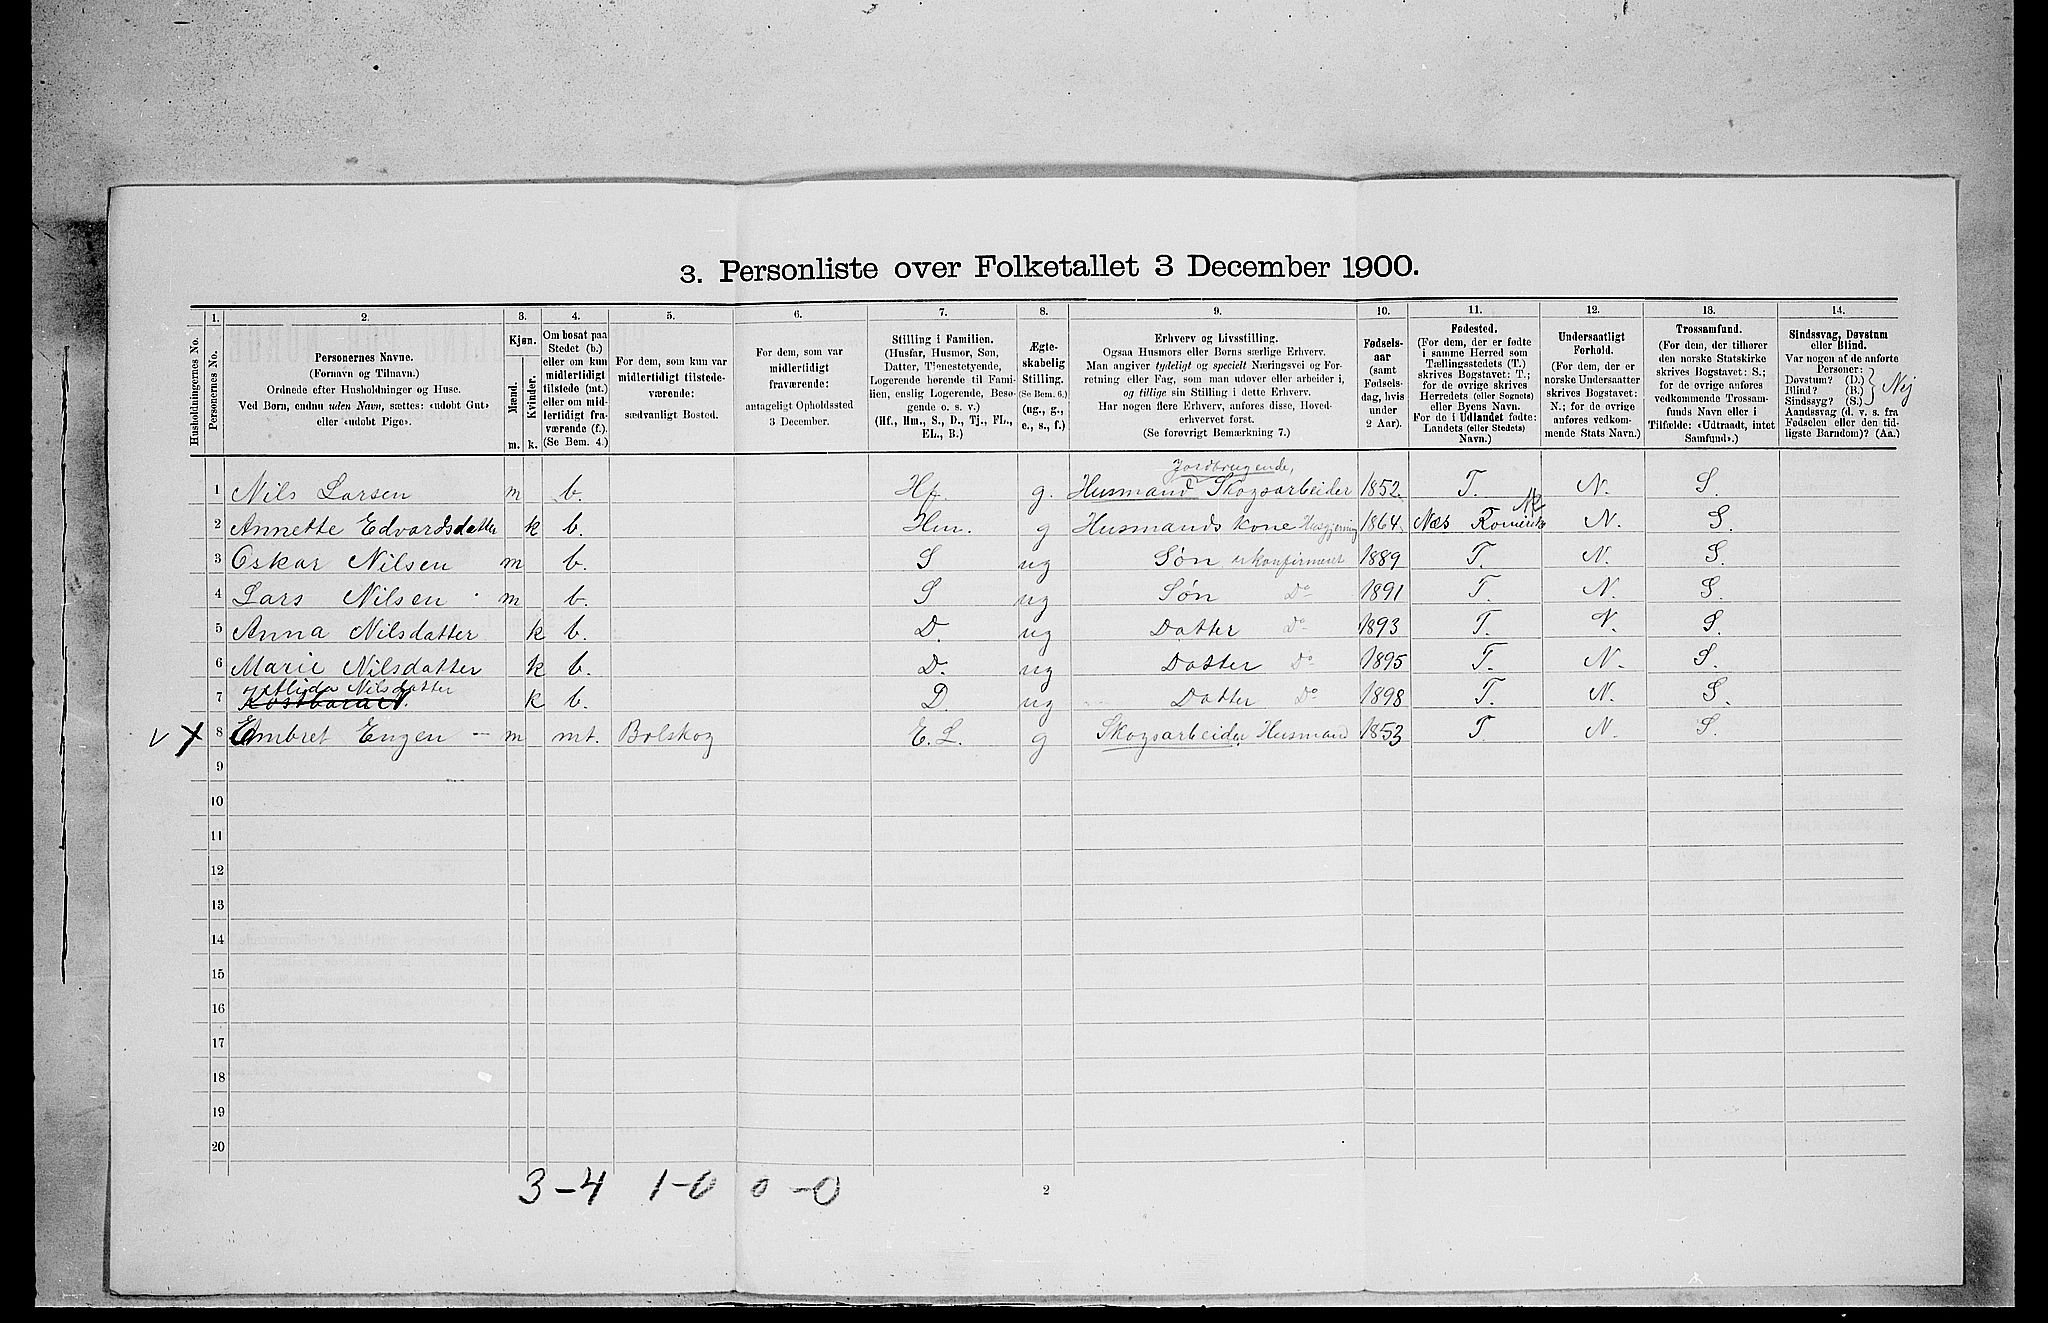 3. Personliste over Folketallet 3 December 1900.
1. 2. 3. 4. 5. 6. 7. 8. 9. 10. 11. 12. 13. 14.
Husholdningernes No.
Personernes No.
Personernes Navne.
(Fornavn og Tilnavn.)
Ordnede efter Husholdninger og Huse.
Ved Børn, endnu uden Navn, sættes: «udøbt Gut»
eller «udøbt Pige».
Kjøn.
Mænd.
Kvinder.
m. k.
Om bosat paa
Stedet (b.)
eller om kun
midlertidigt
tilstede (mt.)
eller om mid-
lertidigt fra-
værende (f.).
(Se Bem. 4.)
For dem, som kun var
midlertidigt tilstede-
værende:
sædvanligt Bosted.
For dem, som var
midlertidigt
fraværende:
antageligt Opholdssted
3 December.
Stilling i Familien.
(Husfar, Husmor, Søn,
Datter, Tjenestetyende,
Logerende hørende til Fami-
lien, enslig Logerende, Besø-
gende o. s. v.)
(Hf., Hm., S., D., Tj., FL.,
EL., B.)
Ægte-
skabelig
Stilling.
(Se Bem. 6.)
(ug., g.,
e., s., f.)
Erhverv og Livsstilling.
Ogsaa Husmors eller Børns særlige Erhverv.
Man angiver tydeligt og specielt Næringsvei og For-
retning eller Fag, som man udover eller arbeider i,
og tillige sin Stilling i dette Erhverv.
Har nogen flere Erhverv, anføres disse, Hoved-
erhvervet først.
(Se forøvrigt Bemærkning 7.)
Fødsels-
aar
(samt
Fødsels-
dag, hvis
under
2 Aar).
Fødested.
(For dem, der er fødte
i samme Herred som
Tællingsstedets (T.)
skrives Bogstavet: T.;
for de øvrige skrives
Herredets (eller Sognets)
eller Byens Navn.
For de i Udlandet fødte:
Landets (eller Stedets)
Navn.)
Undersaatligt
Forhold.
(For dem, der er
norske Undersaatter
skrives Bogstavet:
N.; for de øvrige
anføres vedkom-
mende Stats Navn.)
Trossamfund.
(For dem, der tilhører
den norske Statskirke
skrives Bogstavet: S.;
for de øvrige anføres
vedkommende Trossam-
funds Navn eller i
Tilfælde: «Udtraadt, intet
Samfund».)
Sindssvag, Døvstum
eller Blind.
Var nogen af de anførte
Personer:
Døvstum? (D.)
Blind? (B.)
Sindssyg? (S.)
Nej
Aandssvag (d. v. s. fra
Fødselen eller den tid-
ligste Barndom)? (Aa.)
Jordbrugende,
1 Nils Larsen m b. Hf g. Husmand Skogsarbeider 1852. T. N. S.
2 Annette Edvardsdatter k b. Hm. g Husmands kone Husgjerning 1864. Næs Romerike N. S.
3 Oskar Nilsen m b. S ug Søn ukonfirmeret 1889 T. N. S.
4 Lars Nilsen m b. S ug Søn Do 1891 T. N. S.
5 Anna Nilsdatter k b. D. ug Datter Do 1893 T. N. S.
6 Marie Nilsdatter k b. D. ug Datter Do 1895 T. N. S.
7 Nilsdatter k b. D. ug Datter Do 1898 T. N. S.
8 Embret Engen m mt. Bolskog E. L. g Skogsarbeider Husmand 1853 T. N. S.
9
10
11
12
13
14
15
16
17
18
19
20
3-4 1-0 0-0
2